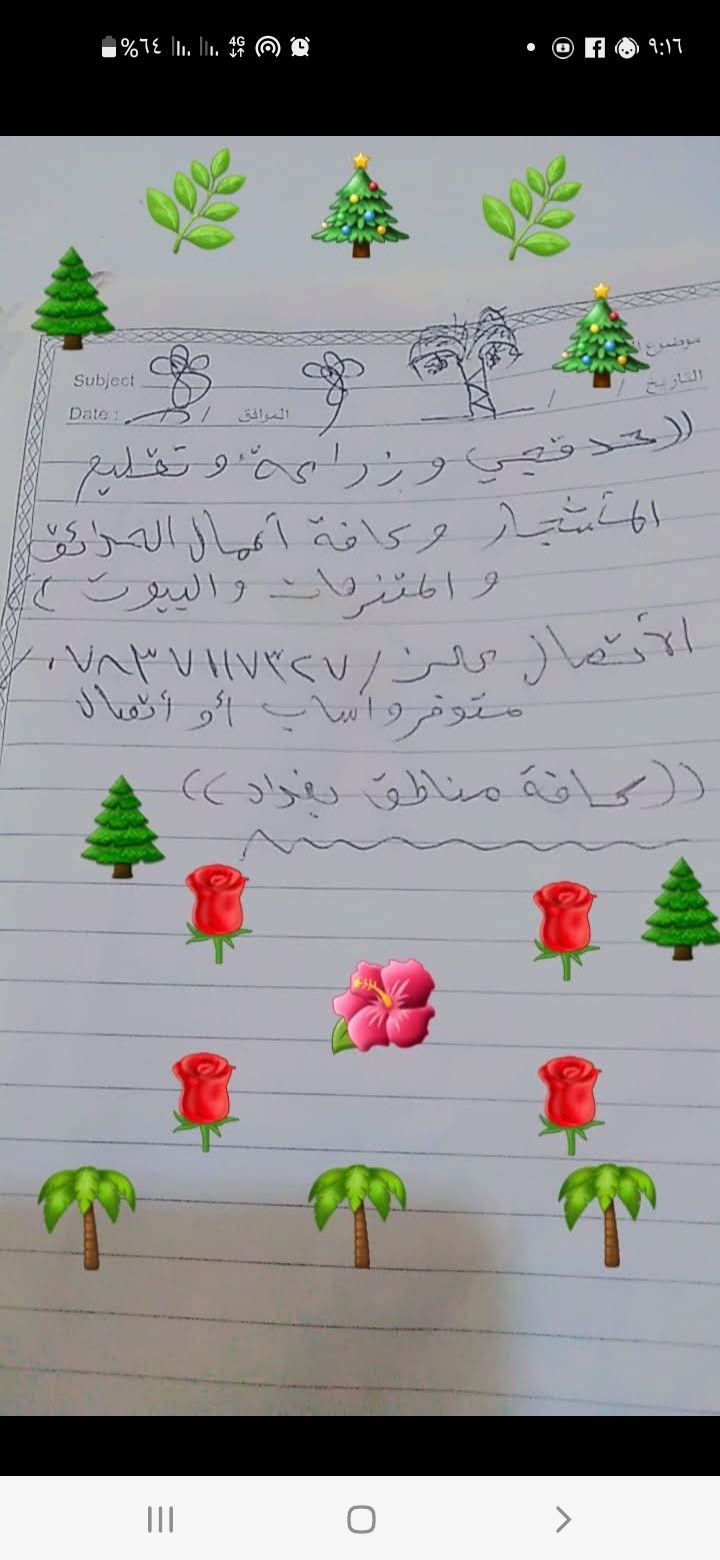 %٦٤ 4G ٩:١٦
Subject موضوع
Date : / / الموافق / / التاريخ
((حدقچي وزراعة وتقليم
الأشجار وكافة أعمال الحدائق
والمتنزهات والبيوت ))
الأتصال على الرقم / ٠٧٨٣٧١١٧٣٢٧
متوفر واتساب أو أتصال
((كافة مناطق بغداد))